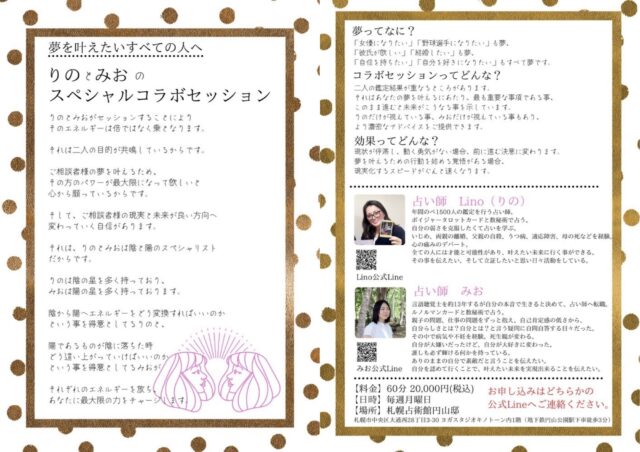 夢を叶えたいすべての人へ
りのとみおの
スペシャルコラボセッション
りのとみおがセッションすることにより
そのエネルギーは倍ではなく乗となります。
それは二人の目的が共鳴しているからです。
ご相談者様の夢を叶えるため、
その方のパワーが最大限になって欲しいと
心から願っているからです。
そして、ご相談者様の現実と未来が良い方向へ
変わっていく自信があります。
それは、りのとみおは陰と陽のスペシャリスト
だからです。
りのは陰の星を多く持っており、
みおは陽の星を多く持っております。
陰から陽へエネルギーをどう変換すればいいのか
という事を得意としてるりのと、
陽であるものが陰に落ちた時
どう這い上がっていけばいいのか
という事を得意としてるみおが
それぞれのエネルギーを放ち
あなたに最大限の力をチャージします。
夢ってなに？
「女優になりたい」「野球選手になりたい」も夢、
「彼氏が欲しい」「結婚したい」も夢、
「自信を持ちたい」「自分を好きになりたい」もすべて夢です。
コラボセッションってどんな？
二人の鑑定結果が重なるところがあります。
それはあなたの夢を叶えるにあたり、最も重要な事項である事、
このまま進むと未来がこうなる事を示しています。
りのだけが視えている事、みおだけが視えている事もあり、
より濃密なアドバイスをご提供できます。
効果ってどんな？
現状が停滞し、動く勇気がない場合、前に進む決意に変わります。
夢を叶えるための行動を始める覚悟がある場合、
現実化するスピードがぐんと速くなります。
占い師　Lino（りの）
年間のべ1500人の鑑定を行う占い師。
ボイジャータロットカードと数秘術で占う。
自分の弱さを克服したくて占いを学ぶ。
いじめ、両親の離婚、父親の自殺、うつ病、適応障害、母の死などを経験。
心の痛みのデパート。
全ての人には才能と可能性があり、叶えたい未来に行く事ができる。
その事を伝えたい、そして立証したいと思い日々活動をしている。
Lino公式Line
占い師　みお
言語聴覚士を約13年するが自分の本音で生きると決めて、占い師へ転職。
ルノルマンカードと数秘術で占う。
親子の問題、仕事の問題をずっと抱え、自己肯定感の低さから、
自分らしさとは？自分とは？と言う疑問に自問自答する日々だった。
その中で病気や不妊を経験、死生観が変わる。
自分が大嫌いだったけど、自分が大好きに変わった。
誰しも必ず輝ける何かを持っている。
ありのままの自分で素敵だと言うことを伝えたい。
自分を認めて行くことで、叶えたい未来を実現出来ることを伝えたい。
みお公式Line
【料金】60分 20,000円(税込)
【日時】毎週月曜日
【場所】札幌占術館円山邸
お申し込みはどちらかの
公式Lineへご連絡ください。
札幌市中央区大通西28丁目3-30 ヨガスタジオキノトーン内1階（地下鉄円山公園駅下車徒歩3分）